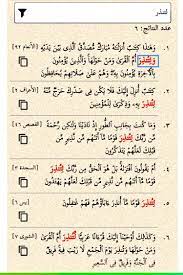 لتنذر
عدد النتائج: ٦
١. وَهَٰذَا كِتَابٌ أَنزَلْنَاهُ مُبَارَكٌ مُّصَدِّقُ الَّذِي بَيْنَ يَدَيْهِ [الأنعام ٩٢]
وَلِتُنذِرَ أُمَّ الْقُرَىٰ وَمَنْ حَوْلَهَا وَالَّذِينَ يُؤْمِنُونَ
بِالْآخِرَةِ يُؤْمِنُونَ بِهِ وَهُمْ عَلَىٰ صَلَاتِهِمْ يُحَافِظُونَ
٢. كِتَابٌ أُنزِلَ إِلَيْكَ فَلَا يَكُن فِي صَدْرِكَ حَرَجٌ [الأعراف ٢]
مِّنْهُ لِتُنذِرَ بِهِ وَذِكْرَىٰ لِلْمُؤْمِنِينَ
٣. وَمَا كُنتَ بِجَانِبِ الطُّورِ إِذْ نَادَيْنَا وَلَٰكِن رَّحْمَةً [القصص ٤٦]
مِّن رَّبِّكَ لِتُنذِرَ قَوْمًا مَّا أَتَاهُم مِّن نَّذِيرٍ مِّن قَبْلِكَ
لَعَلَّهُمْ يَتَذَكَّرُونَ
٤. أَمْ يَقُولُونَ افْتَرَاهُ بَلْ هُوَ الْحَقُّ مِن رَّبِّكَ لِتُنذِرَ [السجدة ٣]
قَوْمًا مَّا أَتَاهُم مِّن نَّذِيرٍ مِّن قَبْلِكَ لَعَلَّهُمْ يَهْتَدُونَ
٥. لِتُنذِرَ قَوْمًا مَّا أُنذِرَ آبَاؤُهُمْ فَهُمْ غَافِلُونَ [يس ٦]
٦. وَكَذَٰلِكَ أَوْحَيْنَا إِلَيْكَ قُرْآنًا عَرَبِيًّا لِّتُنذِرَ أُمَّ الْقُرَىٰ
وَمَنْ حَوْلَهَا وَتُنذِرَ يَوْمَ الْجَمْعِ لَا رَيْبَ فِيهِ فَرِيقٌ
فِي الْجَنَّةِ وَفَرِيقٌ فِي السَّعِيرِ